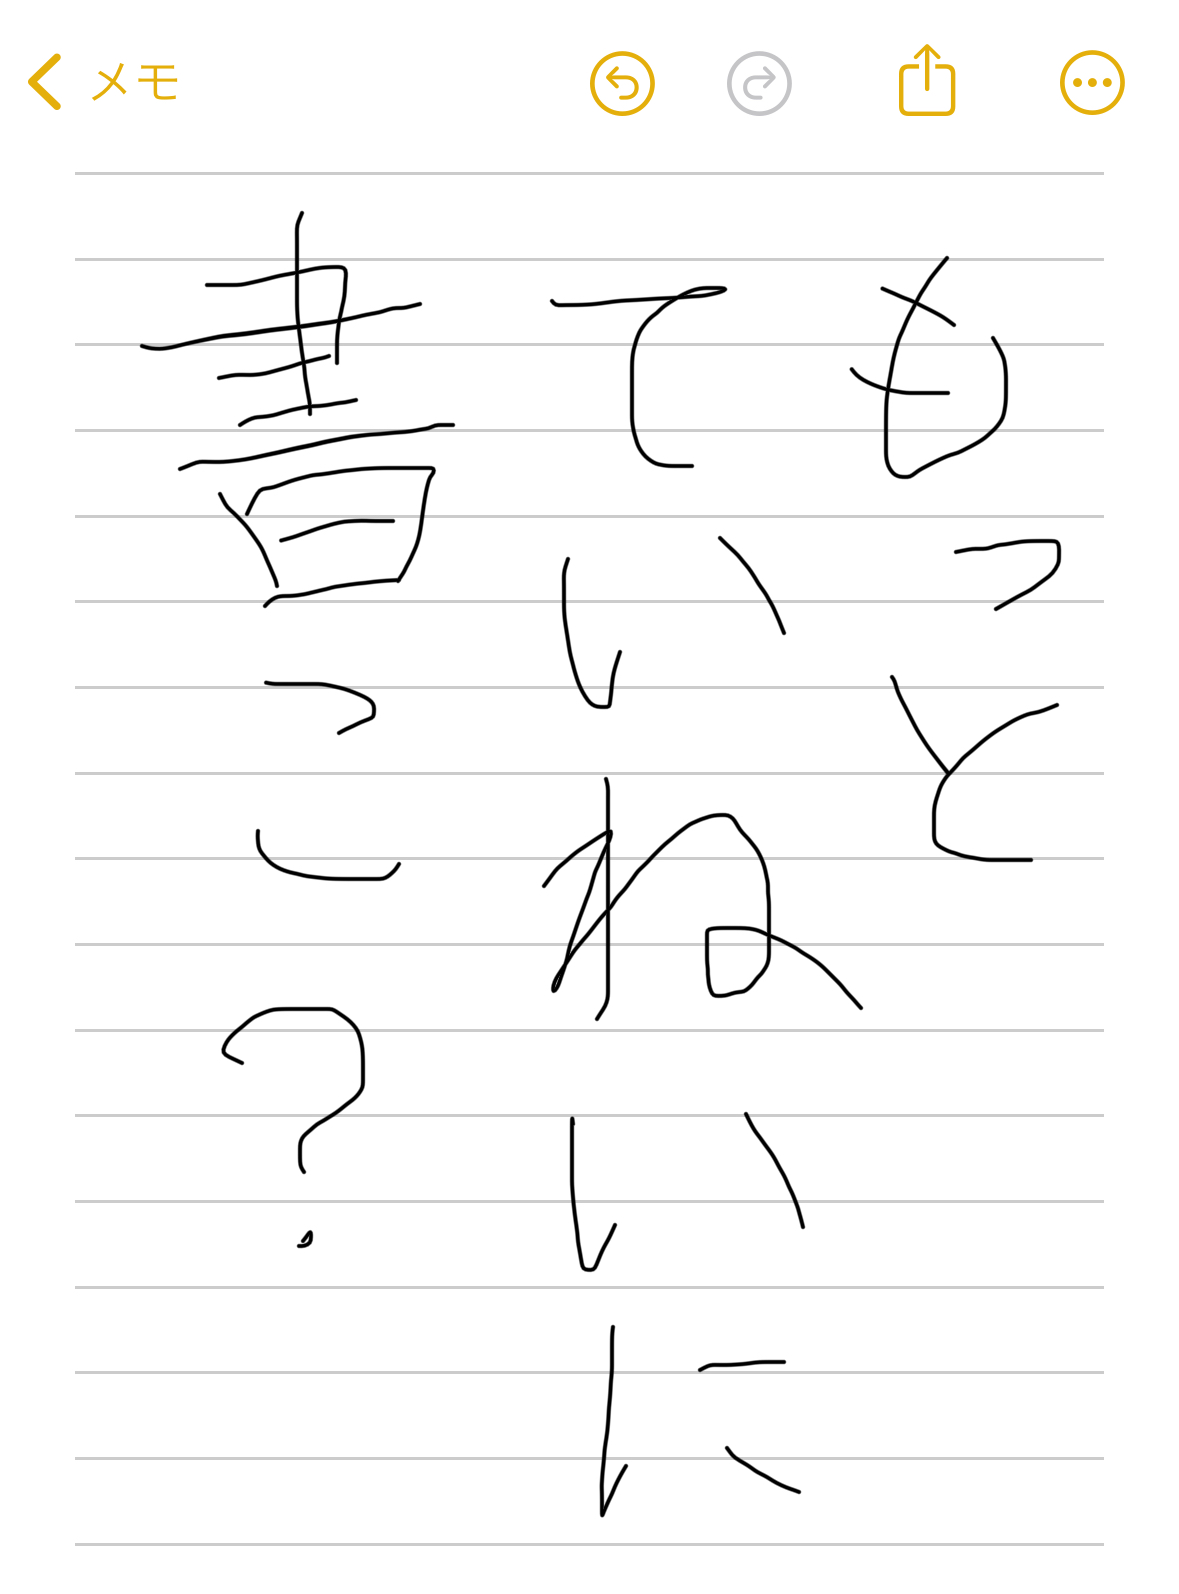 メモ
もっと
ていねいに
書こ?